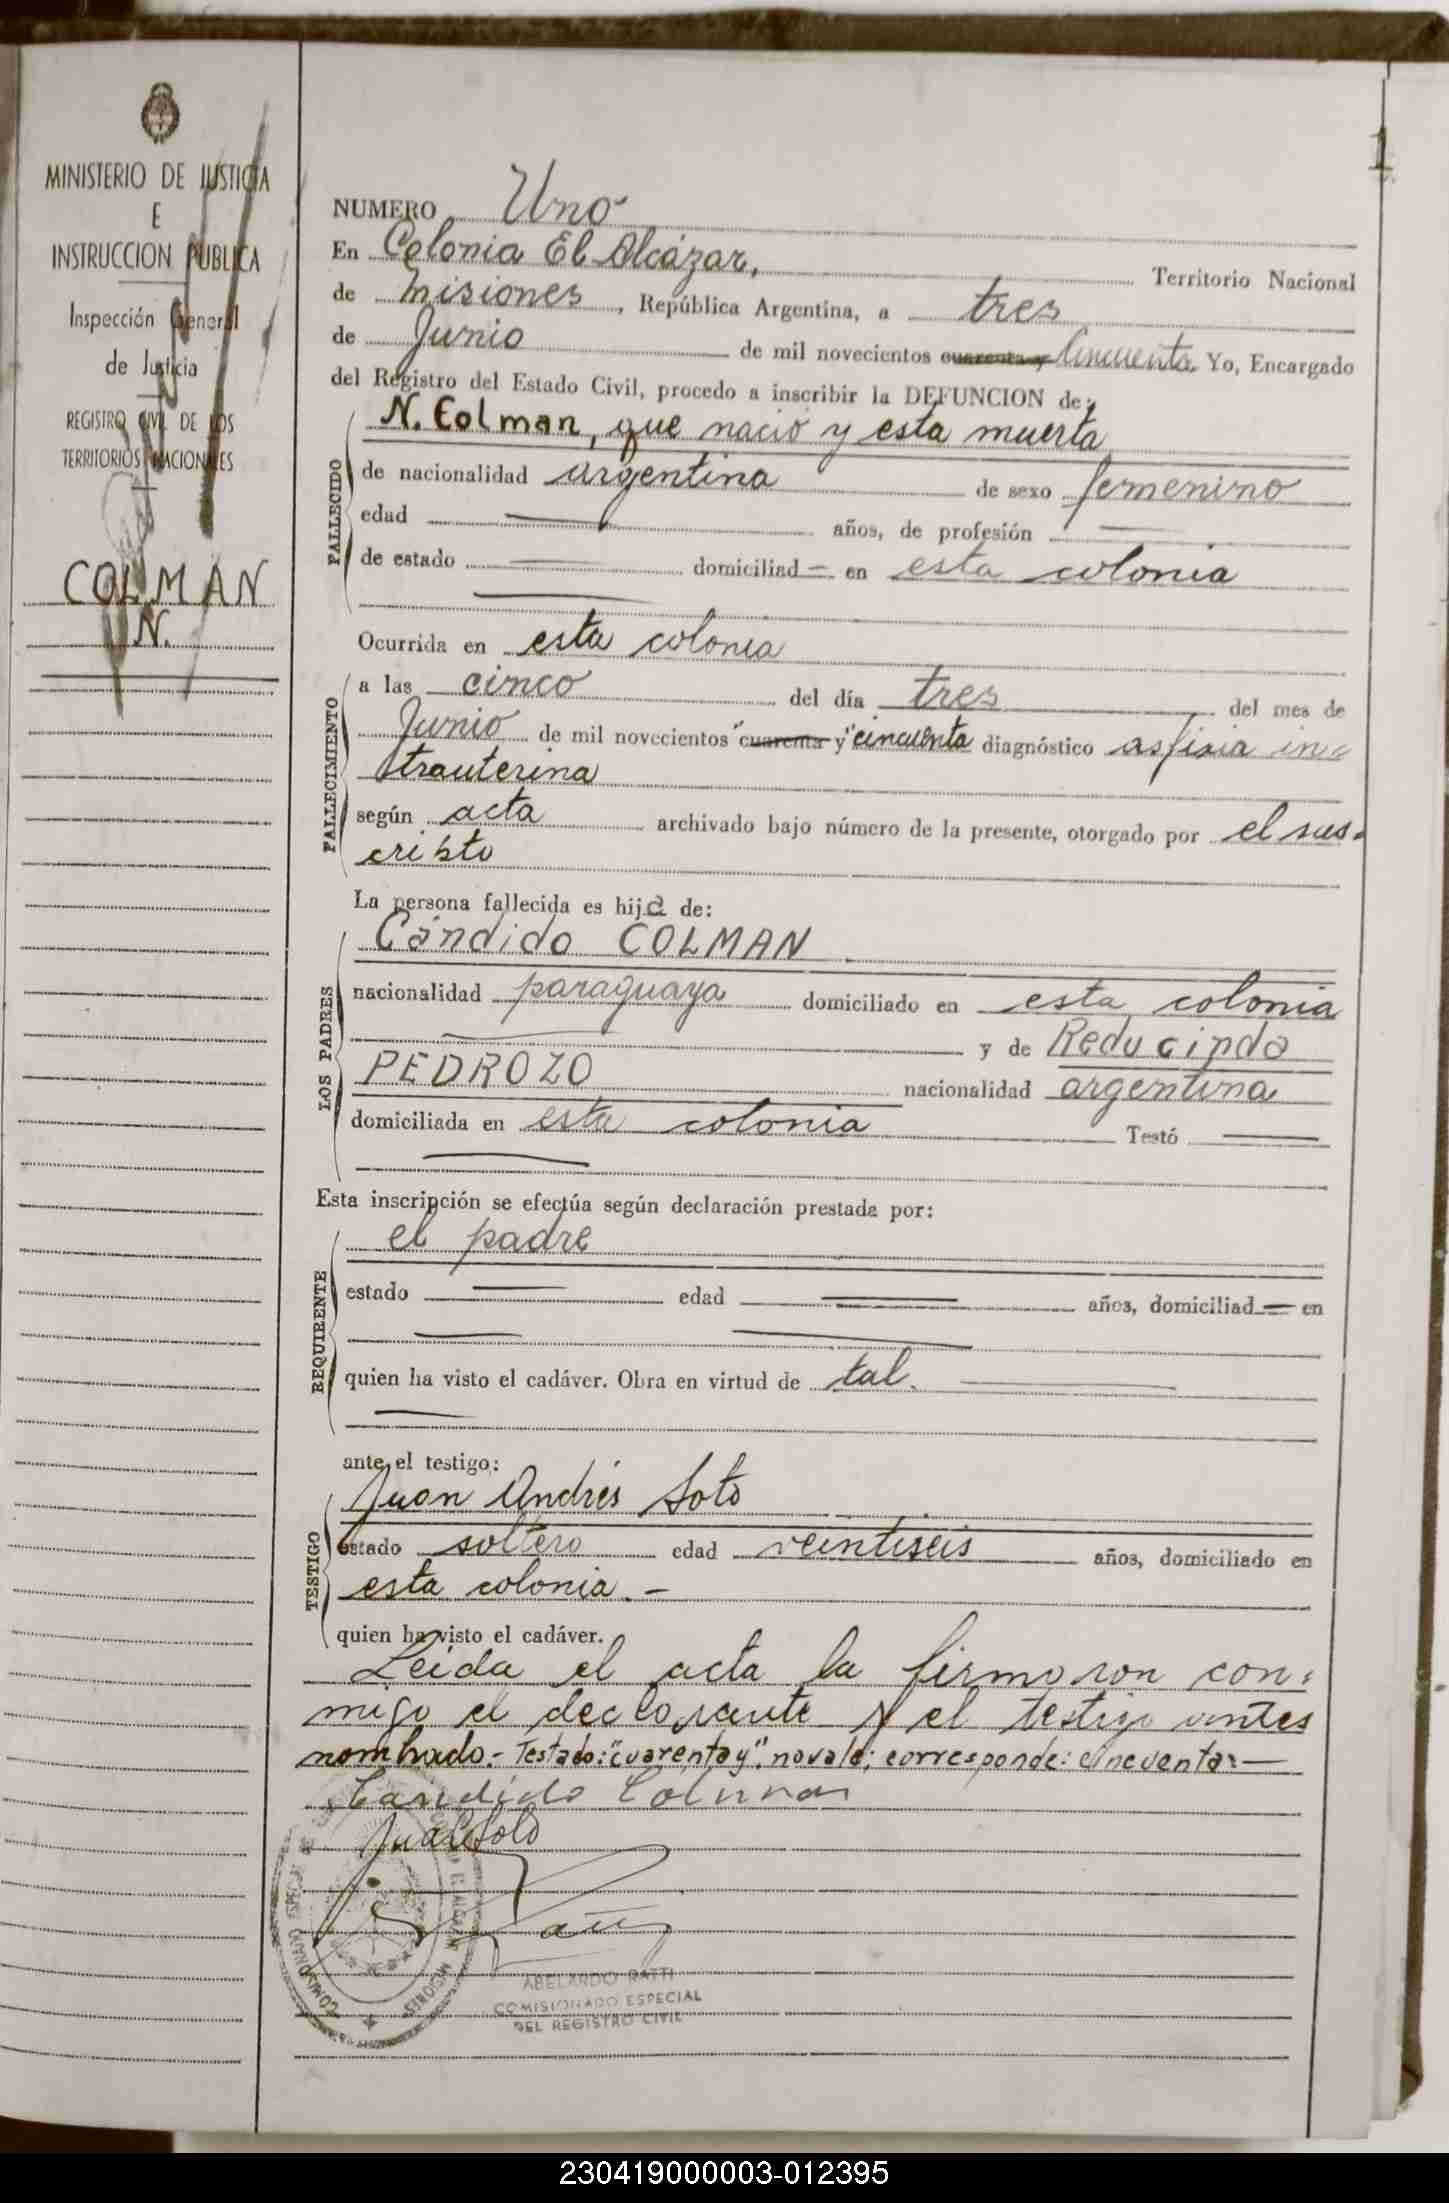 MINISTERIO DE JUSTICIA
E
INSTRUCCION PUBLICA
Inspección General
de Justicia
REGISTRO CIVIL DE LOS
TERRITORIOS NACIONALES
COLMAN
N.
1
NUMERO Uno
En Colonia El Alcázar, Territorio Nacional
de Misiones, República Argentina, a tres
de Junio de mil novecientos cuarenta y Cincuenta Yo, Encargado
del Registro del Estado Civil, procedo a inscribir la DEFUNCION de:
N. Colman, que nació y esta muerta
FALLECIDO
de nacionalidad argentina de sexo femenino
edad — años, de profesión —
de estado — domiciliad— en esta colonia
Ocurrida en esta colonia
FALLECIMIENTO
a las cinco del día tres del mes de
Junio de mil novecientos "cuarenta y" cincuenta diagnóstico asfixia in-
trauterina
según acta archivado bajo número de la presente, otorgado por el sus-
cripto
La persona fallecida es hija de:
LOS PADRES
Cándido COLMAN
nacionalidad paraguaya domiciliado en esta colonia
— y de Reducinda
PEDROZO nacionalidad argentina
domiciliada en esta colonia Testó —
Esta inscripción se efectúa según declaración prestada por:
REQUIRENTE
el padre
estado — edad — años, domiciliad— en
quien ha visto el cadáver. Obra en virtud de tal. —
ante el testigo:
TESTIGO
Juan Andrés Soto
estado soltero edad veintiseis años, domiciliado en
esta colonia.-
quien ha visto el cadáver.
Leida el acta la firmaron con-
migo el declarante y el testigo antes
nombrado.- Testado: "cuarenta y". no vale; corresponde: cincuenta:—
Candido Colman
Juan A Soto
ABELARDO RATTI
COMISIONADO ESPECIAL
DEL REGISTRO CIVIL
230419000003-012395